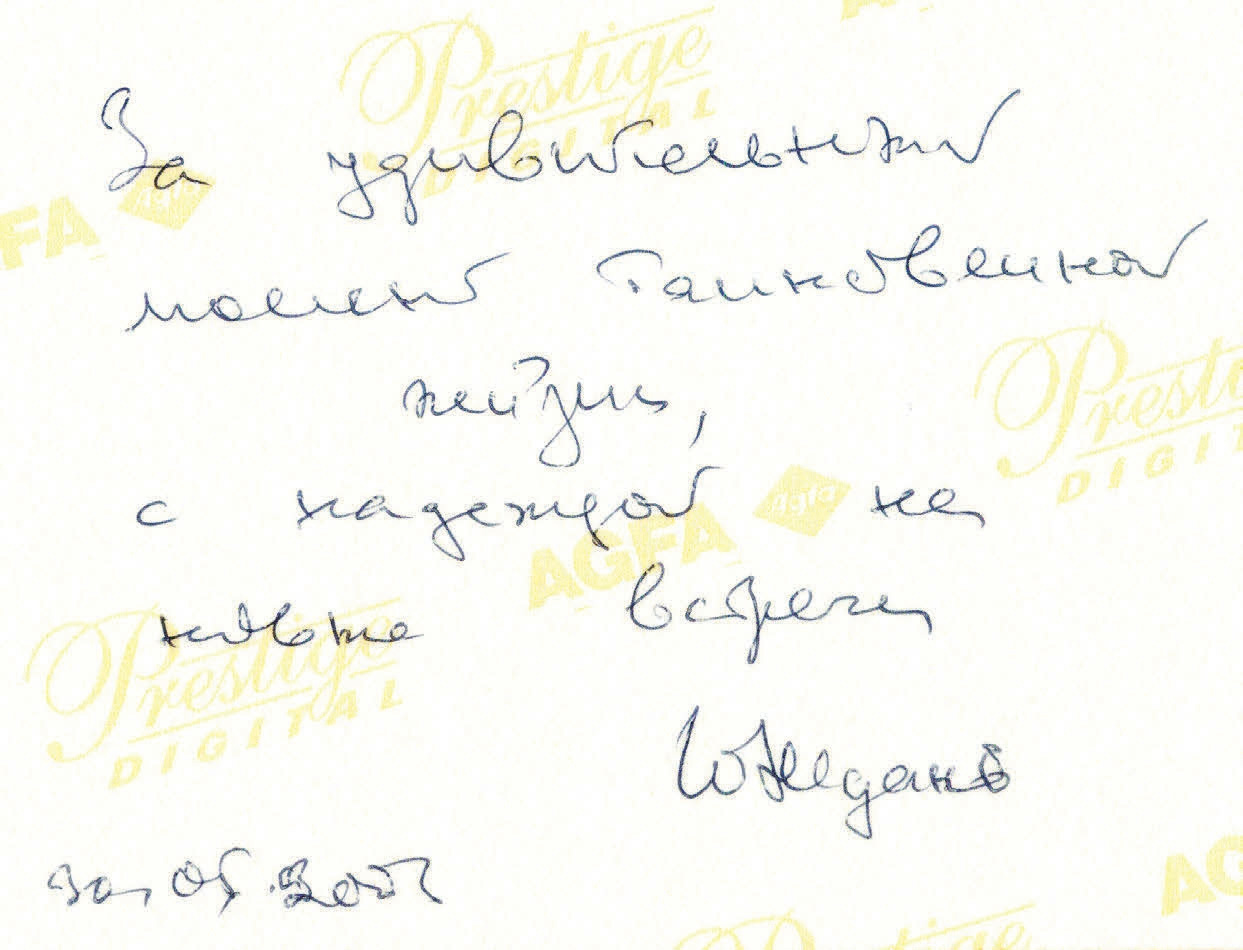 За удивительный
момент таинственной
жизни,
с надеждой на
новые встречи
Ю Жданов
Prestige
DIGITAL
AGFA
Agfa
Prestige
DIGITAL
AGFA
Agfa
Prestige
DIGITAL
AGFA
Prestige